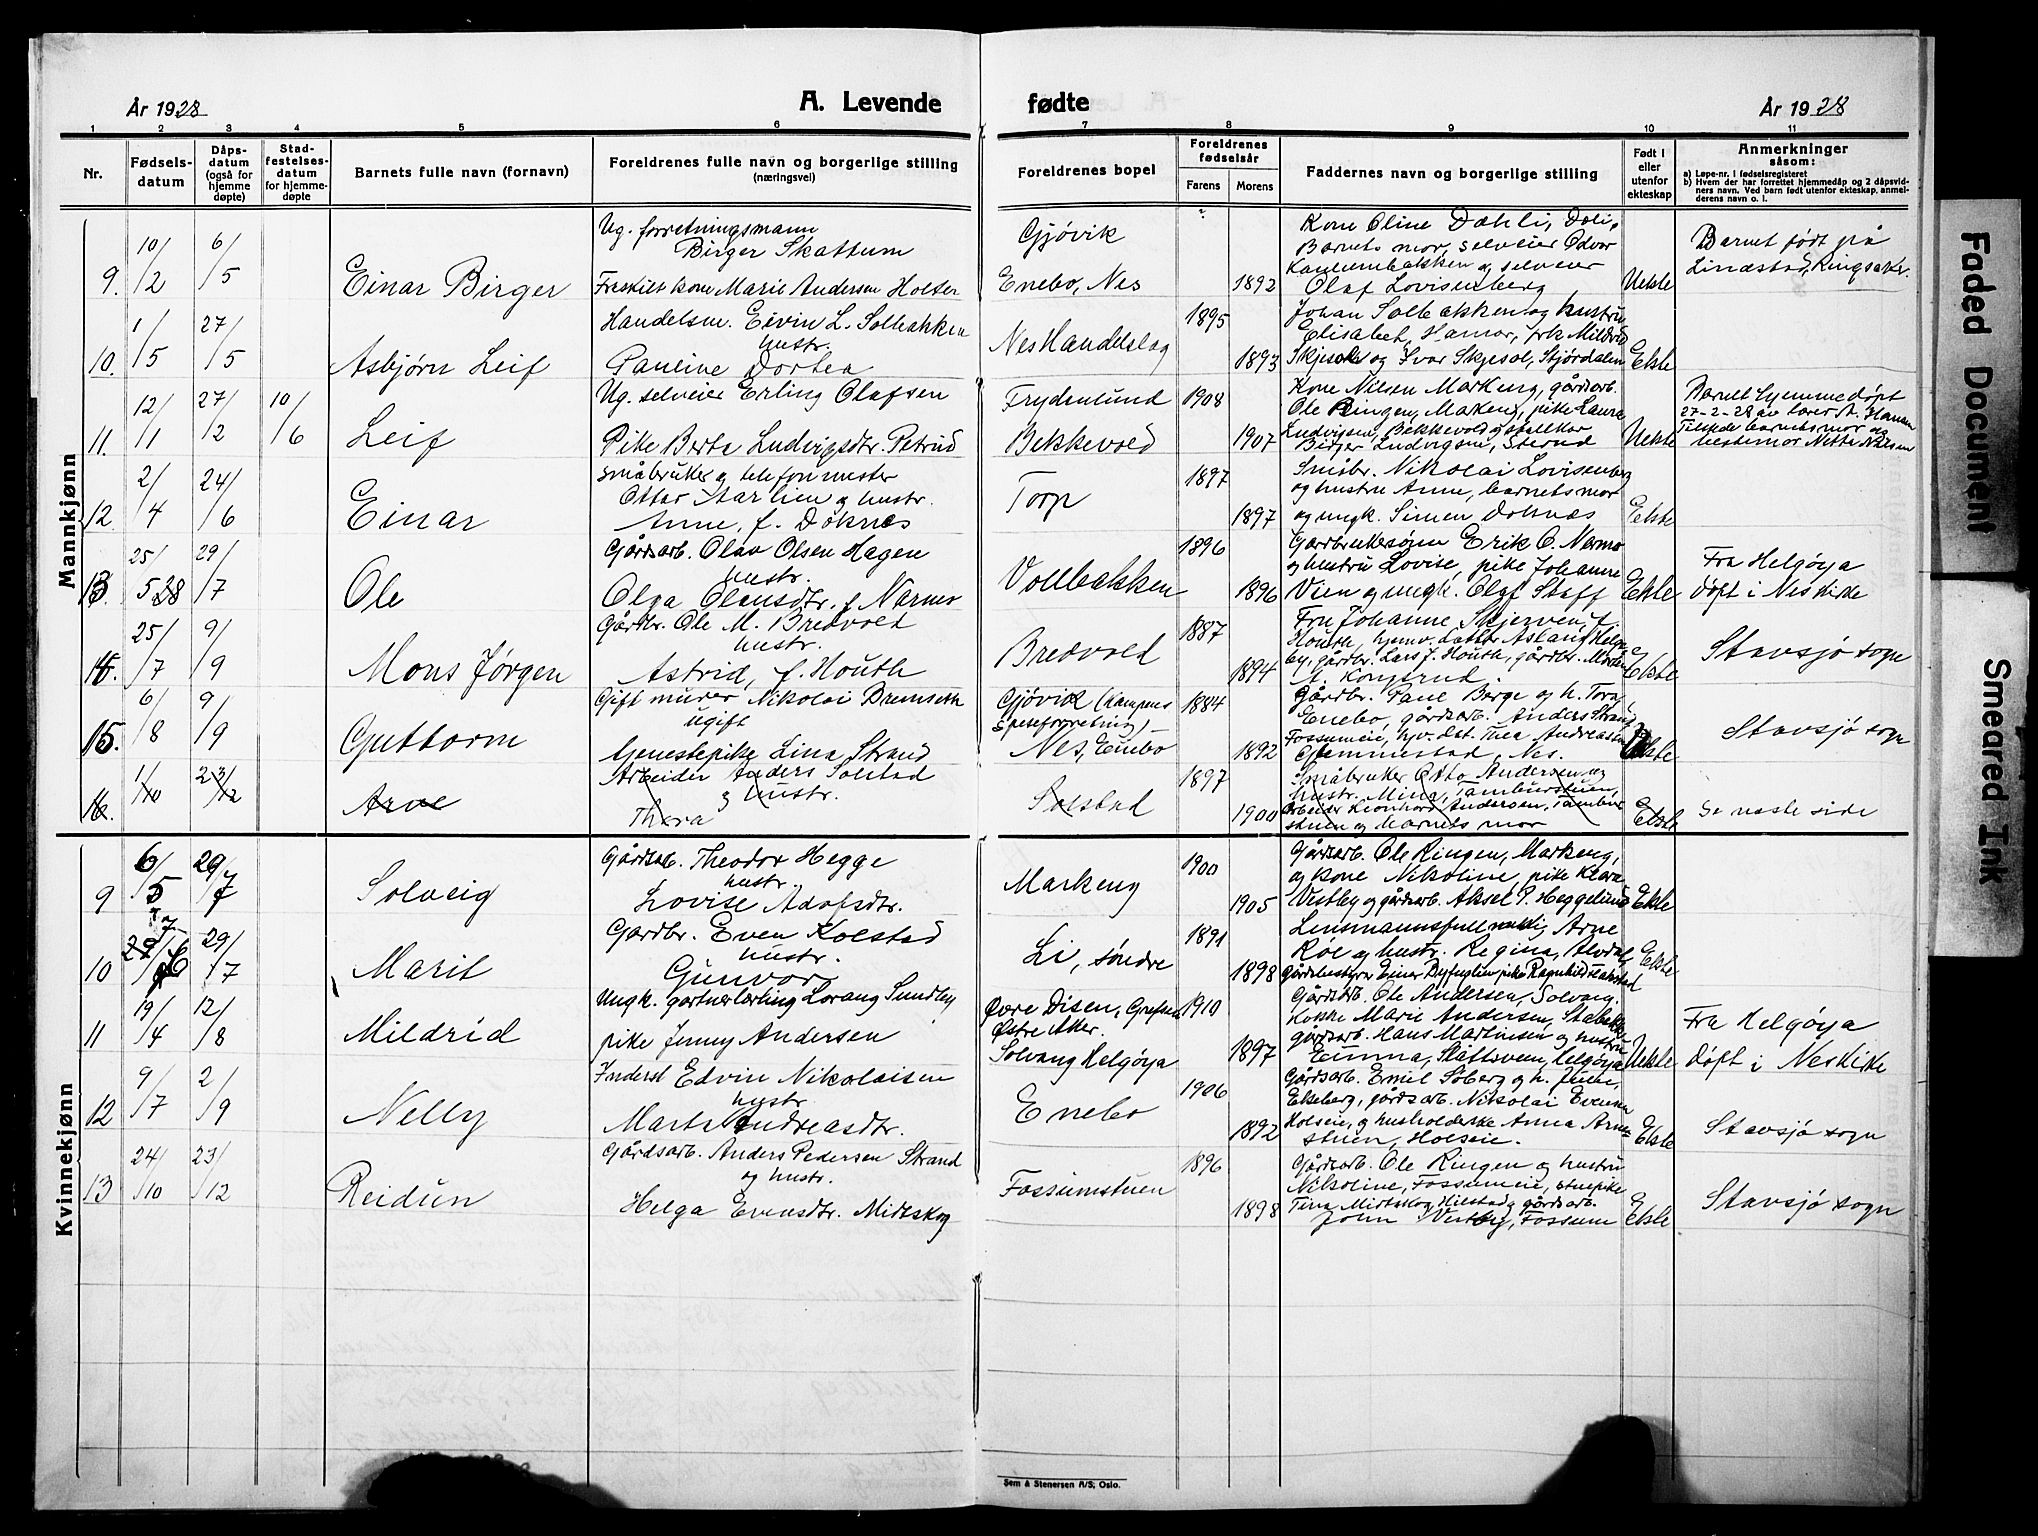 År 1928
A. Levende
fødte
År 1928
1 2 3 4 5 6 7 8 9 10 11
Nr.
Fødsels-
datum
Dåps-
datum
(også for
hjemme
døpte)
Stad-
festelses-
datum
for hjemme-
døpte
Barnets fulle navn (fornavn)
Foreldrenes fulle navn og borgerlige stilling
(næringsvei)
Foreldrenes bopel
Foreldrenes
fødselsår
Farens
Morens
Faddernes navn og borgerlige stilling
Født i
eller
utenfor
ekteskap
Anmerkninger
såsom:
a) Løpe-nr. i fødselsregisteret
b) Hvem der har forrettet hjemmedåp og 2 dåpsvid-
ners navn. Ved barn født utenfor ekteskap, anmel-
derens navn o. l.
Mannkjønn
9. 10/2 6/5 Einar Birger
Ug. forretningsmann
Birger Skattum
Fraskilt kone Marie Andersen Holter
Gjøvik
Enebo, Nes
1892
Kone Oline Dæhli, Doli,
Barnets mor, selveier Edvar
og selveier
Olaf Lovisenberg
Uekte
Barnet født på
Linæstad, Ringsaker.
10. 1/5 27/5 Asbjørn Leif
Handelsm. Eivin L. Solbakken
hustr.
Pauline Dortea
Nes Handelslag
1895
1893
Johan Solbakken og hustru
Elisabet, Hamar, frk Mildrid
Skjesol og Ivar Skjesol, Stjørdalen
Ekte
11. 12/1 27/2 10/6 Leif
Ug. selveier Erling Olafsen
Pike Berta Ludvigsdtr. Petrud
Frydenlund
Bekkevold
1908
1907
Kone Nilsen Markeng, gårdsarb.
Ole Ringen, Markeng, pike Laura
Ludvigsen, Bekkevold og stallkar
Birger Ludvigsen, Sterud
Uekte
Barnet hjemmedøpt
27-2-28 av lærer A. Hansen
Tilstede barnets mor og
bestemor Netta Nilsen
12. 2/4 24/6 Einar
småbruker og telefonmester
Ottar Aarlien og hustr.
Anne, f. Doknes
Torp
1897
1897
Småbr. Nikolai Lovisenberg
og hustru Anne, barnets mor
og ungk. Simen Doknæs
Ekte
13. 25/5 28 29/7 Ole
Gårdsarb. Olav Olsen Hagen
hustr.
Olga Olausdtr. f. Narmo
Vollbakken
1896
1896
Gardbrukersønn Erik O. Narmo
og hustru Lovise, pike Johanne
Vien og ungk. Olaf Staff
Ekte
Fra Helgøya
døpt i Nes kirke
14. 25/7 9/9 Mons Jørgen
Gårdbr. Ole M. Bredvold
hustr.
Astrid, f. Houth
Bredvold
1887
1894
Fru Johanne Skjerven, f.
Houth, hjemv. datter Aslaug Helge
by, gårdbr. Lars J. Houth, gårdbr. Morten
A. Kongsrud.
Ekte
Stavsjø sogn
15. 6/8 9/9 Guttorm
Gift murer Nikolai Dramseth
ugift
tjenestepike Lina Strand
Gjøvik (Kampens
Speseforretning)
Nes, Enebo
1884
1892
Gårdbr. Pane Berge og h. Tora,
Enebo, gårdsarb. Anders Strand
Fossumeie, hjv. dat. Thea Andreasen
Gjemmestad, Nes.
Uekte
Stavsjø sogn
16. 1/10 23/12 Arve
Arbeider Anders Solstad
og hustr.
Thora
Solstad
1897
1900
Småbruker Otto Andersen og
hustr. Mina, Tamburstuen,
arbeider Leonhard Andersen, Tambur
stuen og barnets mor
Ekte
Se næste side
Kvinnekjønn
9 6/5 29/7 Solveig
Gårdsarb. Theodor Hegge
hustr.
Lovise Adolfsdtr.
Markeng
1900
1905
Gårdsarb. Ole Ringen, Markeng,
og kone Nikoline, pike Klara
Vestby og gårdsarb. Aksel P. Heggelund
Ekte
10 29/6 29/7 Marit
Gardbr. Even Kolstad
hustr.
Gunvor
Li, søndre
1891
1898
Lensmannsfullmektig Arne
Røe og hustr. Regina, Alvdal,
Gårdbestyrer Einar Dyfuglien, pike Ragnhild Kolstad
Ekte
11 19/4 12/8 Mildrid
Ungk. gartnerlærling Lorang Sundby
pike Jenny Andersen
Øvre Disen, Grefsen
Østre Aker.
Solvang Helgøya
1910
1897
Gårdsarb. Ole Andersen, Solvang.
Kokke Marie Andersen, Stabekk
gårdsarb. Hans Martinsen og hustru
Emma, Slåttsveen, Helgøya
Uekte
Fra Helgøya
døpt i Nes kirke
12 9/7 2/9 Nelly
Inderst Edvin Nikolaisen
hustr.
Marta Andreasdtr.
Enebo
1906
1892
Gårdsarb. Emil Soberg og h. Julie,
Ekeberg, gårdsarb. Nikolai Evensen
Holseie, og husholderske Anna Arne-
stuen, Holseie.
Ekte
Stavsjø sogn
13 24/10 23/12 Reidun
Gårdsarb. Anders Pedersen Strand
og hustr.
Helga Evensdtr. Midtskog
Fossumstuen
1896
1898
Gårdsarb. Ole Ringen og hustru
Nikoline, Fossumeie, stuepike
Tina Midtskog, Hilstad og gårdsarb.
John Vestby, Fossum
Ekte
Stavsjø sogn
Sem & Stenersen A/S, Oslo.
Faded Document
Smeared Ink